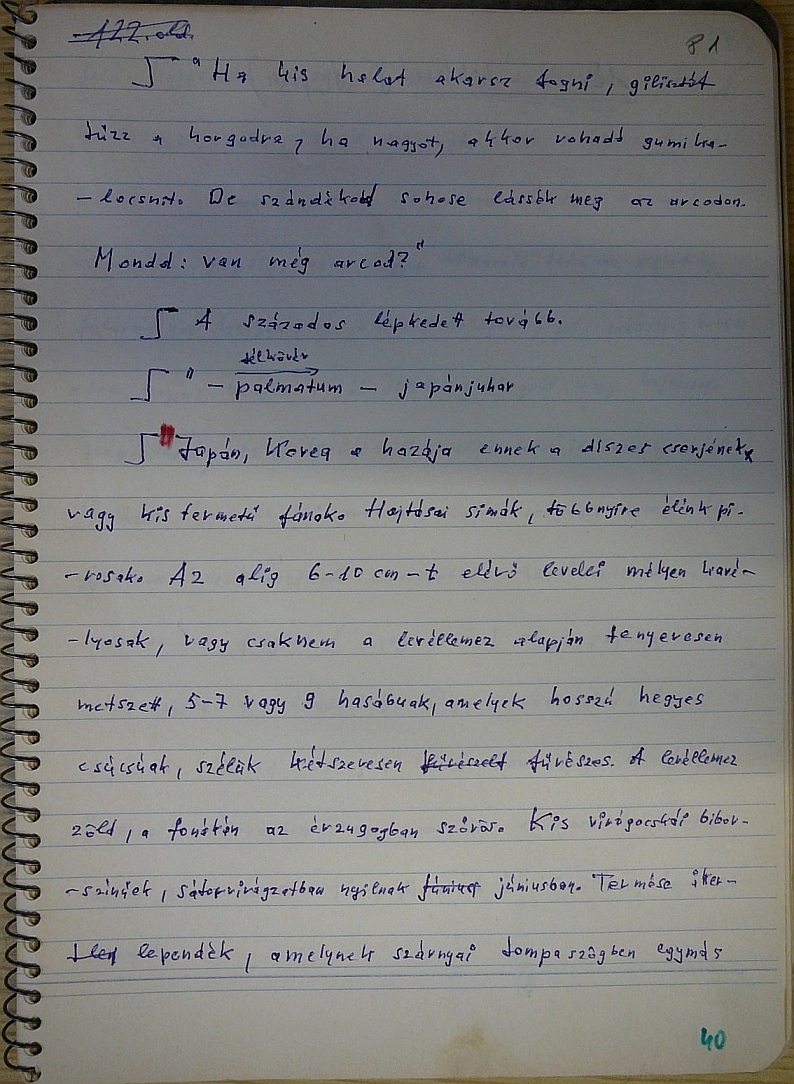 122. old.
81
"Ha kis halat akarsz fogni, gilisztát
tűzz a horgodra, ha nagyot, akkor rohadó gumika-
-locsnit. De szándékod sohose lássék meg az arcodon.
Mondd: van még arcod?"
A százados lépkedett tovább.
félkövér
" – palmatum – japánjuhar
Japán, Korea a hazája ennek a díszes cserjének
vagy kis termetű fának. Hajtásai simák, többnyire élénk pi-
-rosak. Az alig 6-10 cm-t elérő levelei mélyen karé-
-lyosak, vagy csaknem a levéllemez alapján tenyeresen
metszett, 5-7 vagy 9 hasábúak, amelyek hosszú hegyes
csúcsúak, szélük kétszeresen fűrészelt fűrészes. A levéllemez
zöld, a fonákán az érzugogban szőrös. Kis virágocskái bíbor-
-színűek, sátorvirágzatban nyílnak június júniusban. Termése iker-
lependék, amelynek szárnyai tompaszögben egymás
40